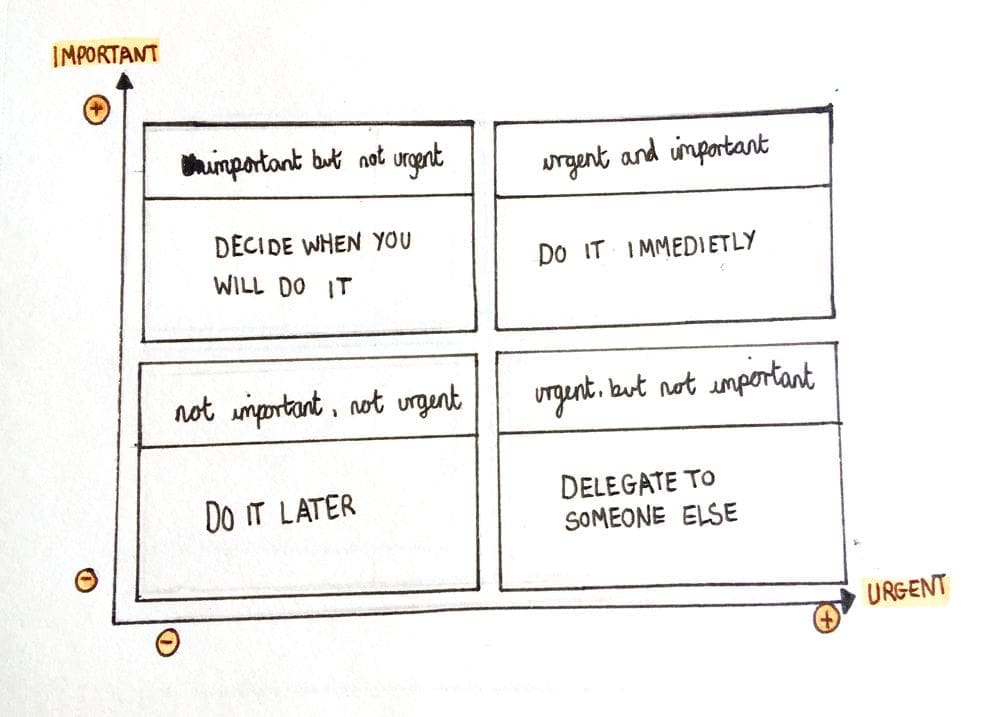 IMPORTANT
+
important but not urgent
urgent and important
DECIDE WHEN YOU
WILL DO IT
DO IT IMMEDIETLY
not important, not urgent
urgent, but not important
DO IT LATER
DELEGATE TO
SOMEONE ELSE
-
URGENT
-
+